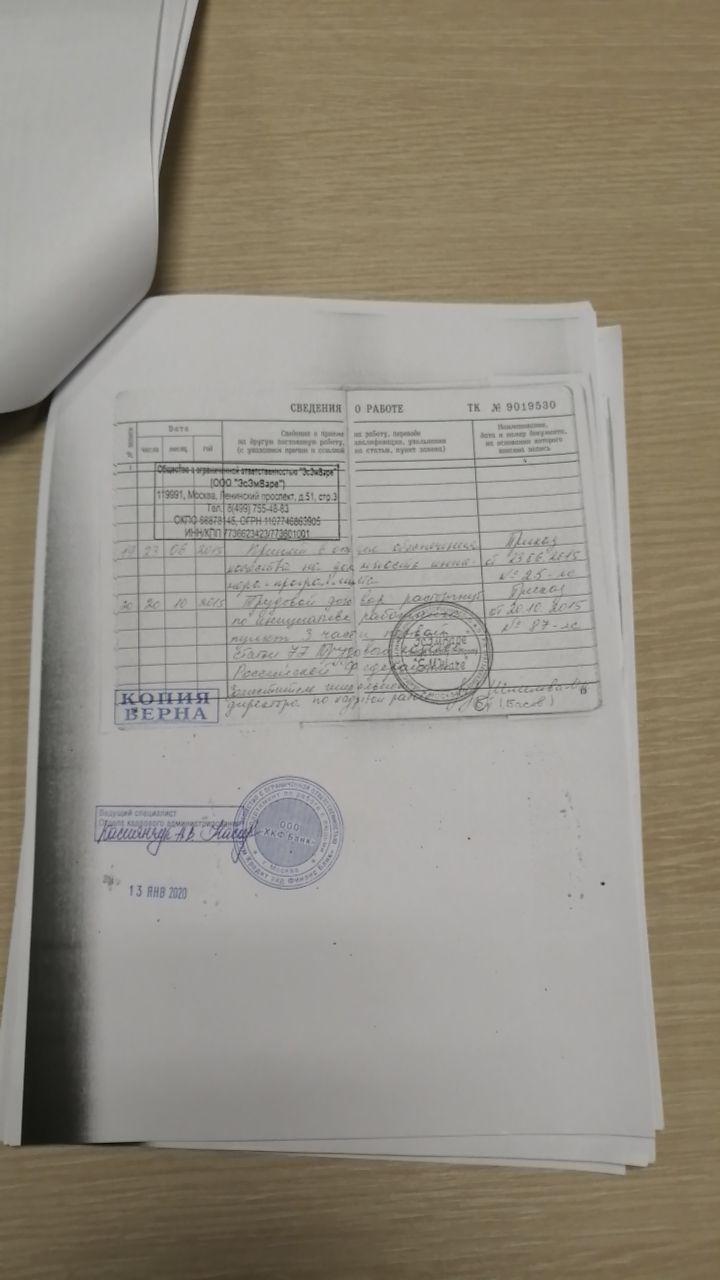 СВЕДЕНИЯ О РАБОТЕ ТК № 9019530
№ записи
Дата
число месяц год
Сведения о приеме на работу, переводе
на другую постоянную работу, квалификации, увольнении
(с указанием причин и ссылкой на статью, пункт закона)
Наименование,
дата и номер документа,
на основании которого
внесена запись
Общество с ограниченной ответственностью "ЭсЭмВаре"
(ООО "ЭсЭмВаре")
119991, Москва, Ленинский проспект, д.51, стр.3
Тел.: 8(499) 755-48-83
ОКПО 66878145, ОГРН 1107746863905
ИНН/КПП 7736623423/773601001
19 23 06 2015 Принят в отдел обеспечения Приказ
качества на должность инже- от 23.06.2015
нера-программиста № 25-лс
20 20 10 2015 Трудовой договор расторгнут Приказ
по инициативе работника от 20.10.2015
пункт 3 части первой № 87-лс
статьи 77 Трудового кодекса
Российской Федерации
Заместитель генерального
директора по кадровой работе
(Басов)
"ЭсЭмВаре"
"SMWare"
6
КОПИЯ
ВЕРНА
Ведущий специалист
Отдела кадрового администрирования
ООО
"ХКФ Банк"
г. Москва
13 ЯНВ 2020